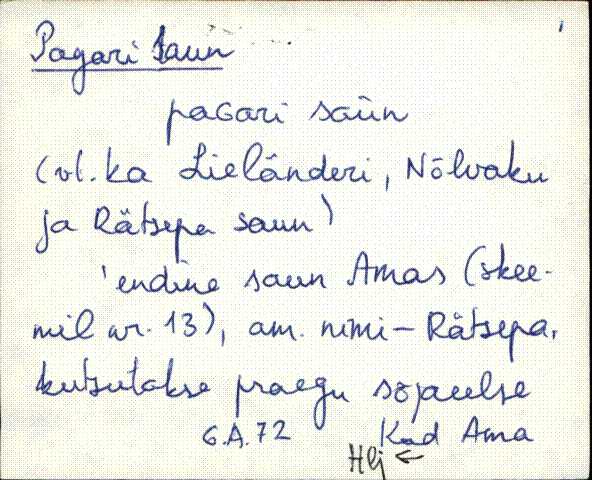 Pagari Saun
paGari saùn
(vt. ka Lieländeri, Nõlvaku
ja Rätsepa saun)
'endine saun Amas (skee-
mil nr. 13), am. nimi – Rätsepa.
kutsutakse praegu sõjaeelse
G.A.72 Kad Ama
Hlj ←